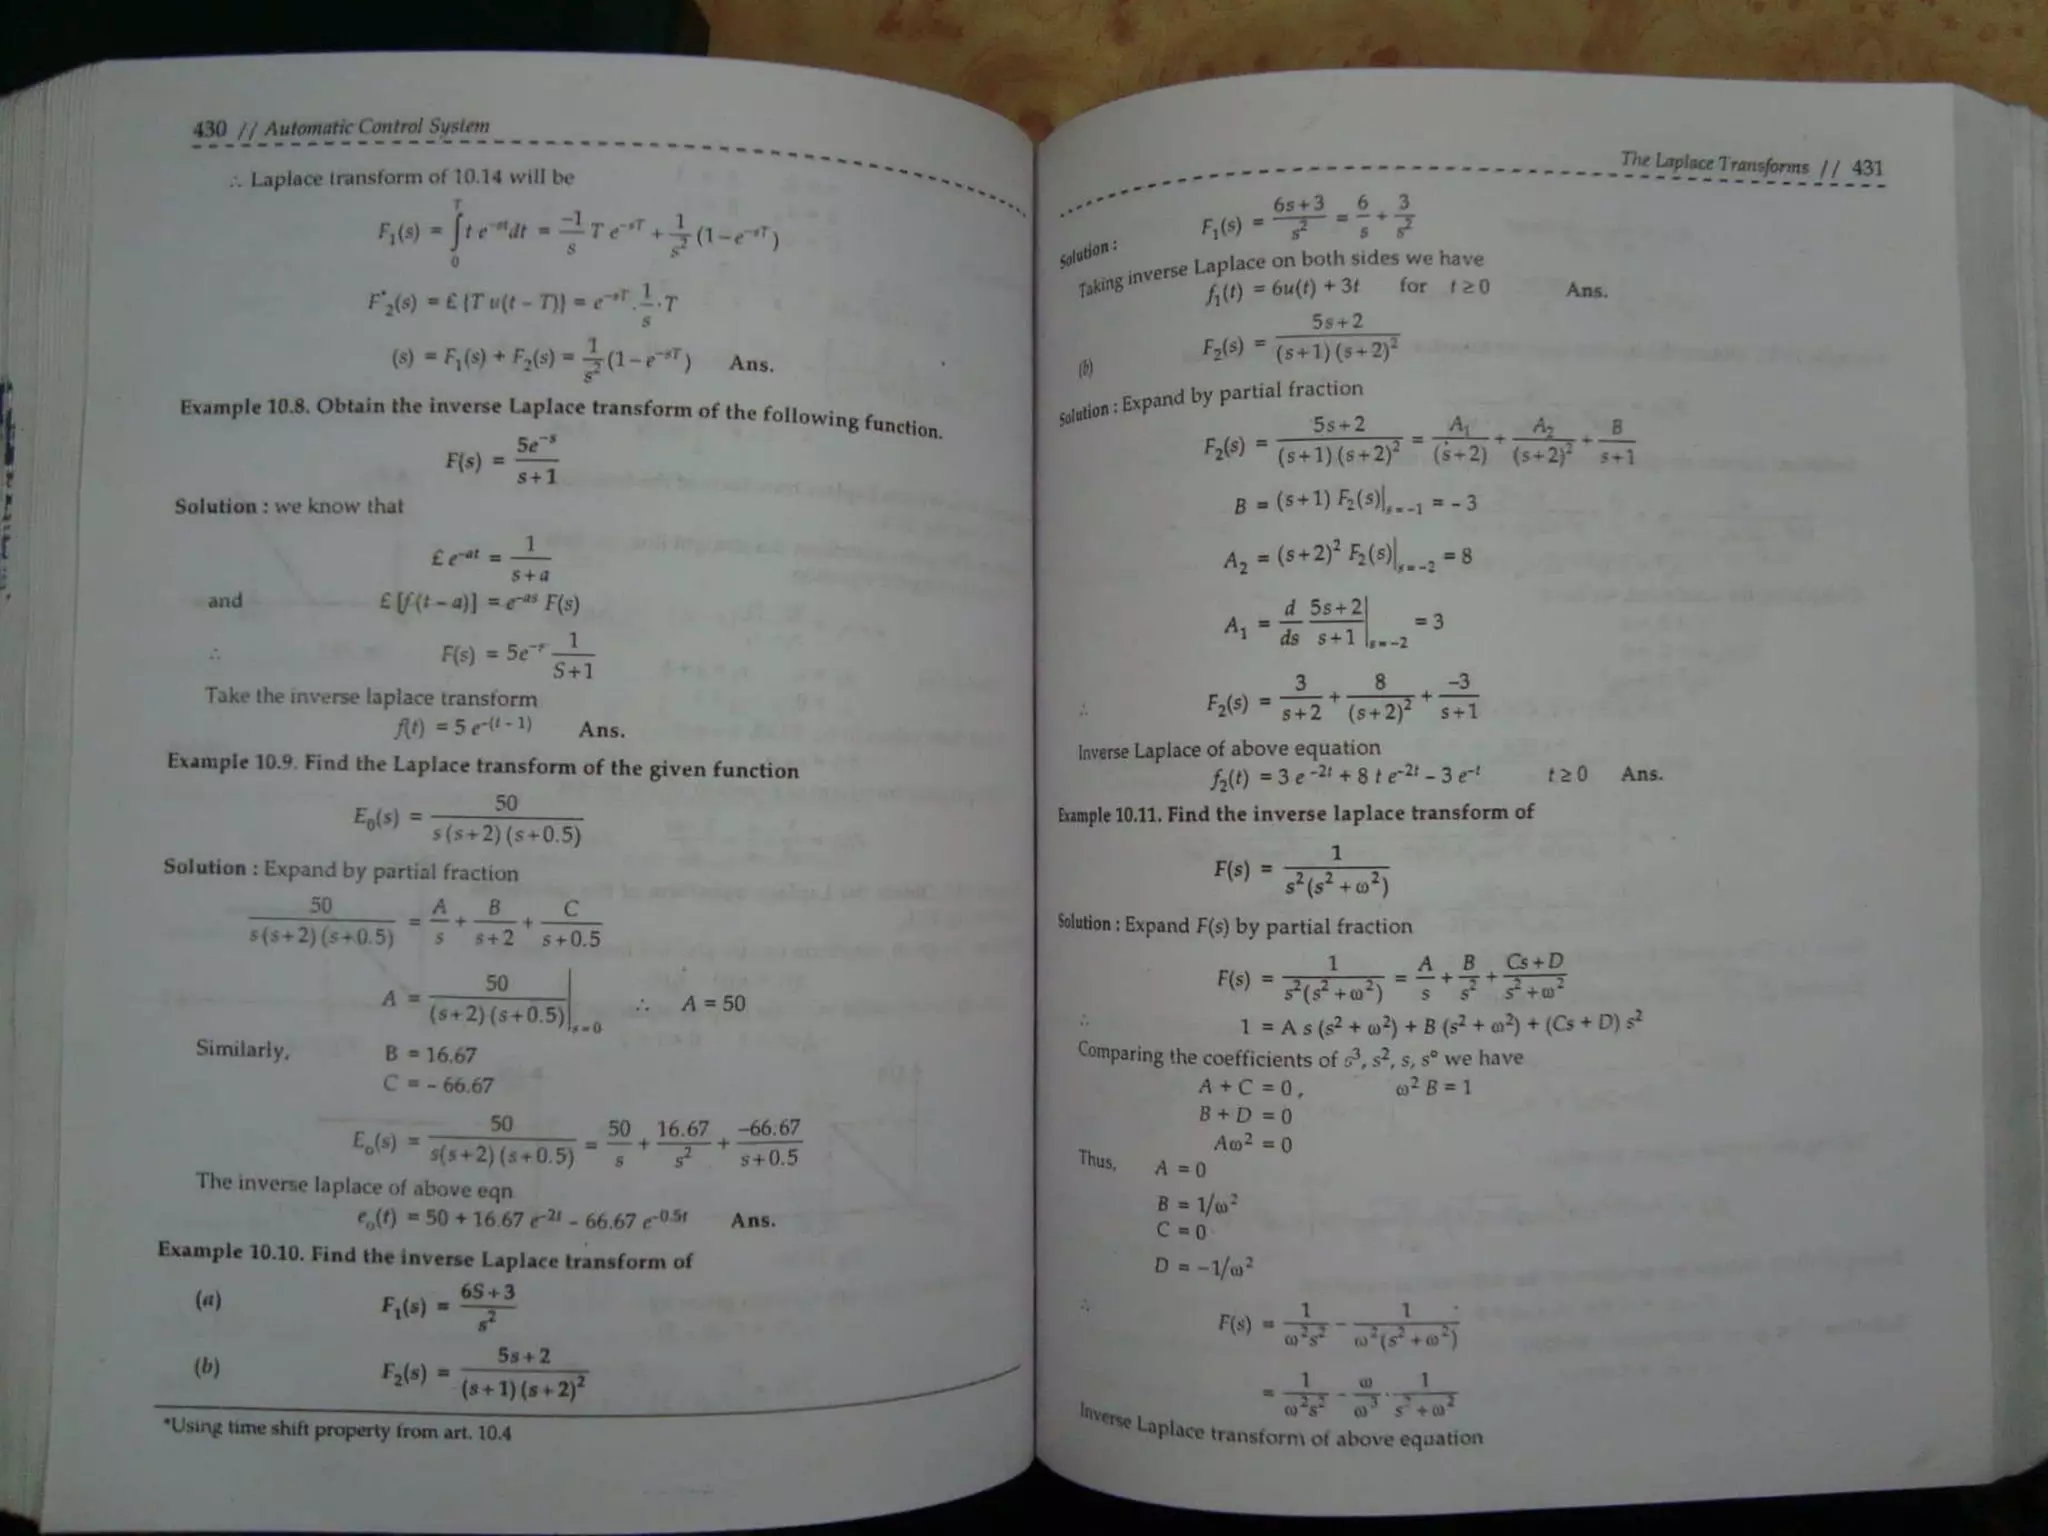 430 // Automatic Control System
∴ Laplace transform of 10.14 will be
F₁(s) = ∫₀ᵀ t e⁻ˢᵗ dt = -1/s T e⁻ˢᵀ + 1/s² (1 – e⁻ˢᵀ)
F*₂(s) = £ {T u(t – T)} = e⁻ˢᵀ . 1/s . T
(s) = F₁(s) + F₂(s) = 1/s² (1 – e⁻ˢᵀ) Ans.
Example 10.8. Obtain the inverse Laplace transform of the following function.
F(s) = 5e⁻ˢ / s+1
Solution : we know that
£ e⁻ᵃᵗ = 1 / s+a
and £ [f(t – a)] = e⁻ᵃˢ F(s)
∴ F(s) = 5e⁻ˢ 1 / S+1
Take the inverse laplace transform
f(t) = 5 e^-(t – 1) Ans.
Example 10.9. Find the Laplace transform of the given function
E₀(s) = 50 / s(s+2)(s+0.5)
Solution : Expand by partial fraction
50 / s(s+2)(s+0.5) = A/s + B/s+2 + C/s+0.5
A = 50 / (s+2)(s+0.5) |s=0 ∴ A = 50
Similarly, B = 16.67
C = – 66.67
Eₒ(s) = 50 / s(s+2)(s+0.5) = 50/s + 16.67/s² + –66.67/s+0.5
The inverse laplace of above eqn
eₒ(t) = 50 + 16.67 e^-2t – 66.67 e^-0.5t Ans.
Example 10.10. Find the inverse Laplace transform of
(a) F₁(s) = 6S+3 / s²
(b) F₂(s) = 5s+2 / (s+1)(s+2)²
*Using time shift property from art. 10.4
The Laplace Transforms // 431
Solution : F₁(s) = 6s+3 / s² = 6/s + 3/s²
Taking inverse Laplace on both sides we have
f₁(t) = 6u(t) + 3t for t ≥ 0 Ans.
(b) F₂(s) = 5s+2 / (s+1)(s+2)²
Solution : Expand by partial fraction
F₂(s) = 5s+2 / (s+1)(s+2)² = A₁/(s+2) + A₂/(s+2)² + B/s+1
B = (s+1) F₂(s)|s=-1 = – 3
A₂ = (s+2)² F₂(s)|s=-2 = 8
A₁ = d/ds 5s+2 / s+1 |s=-2 = 3
∴ F₂(s) = 3/s+2 + 8/(s+2)² + –3/s+1
Inverse Laplace of above equation
f₂(t) = 3 e^-2t + 8 t e^-2t – 3 e^-t t ≥ 0 Ans.
Example 10.11. Find the inverse laplace transform of
F(s) = 1 / s²(s²+ω²)
Solution : Expand F(s) by partial fraction
F(s) = 1 / s²(s²+ω²) = A/s + B/s² + Cs+D / s²+ω²
∴ 1 = A s (s² + ω²) + B (s² + ω²) + (Cs + D) s²
Comparing the coefficients of s³, s², s, s° we have
A + C = 0, ω² B = 1
B + D = 0
Aω² = 0
Thus, A = 0
B = 1/ω²
C = 0
D = –1/ω²
∴ F(s) = 1/ω²s² – 1 / ω²(s²+ω²)
= 1/ω²s² – ω/ω³ . 1 / s²+ω²
Inverse Laplace transform of above equation